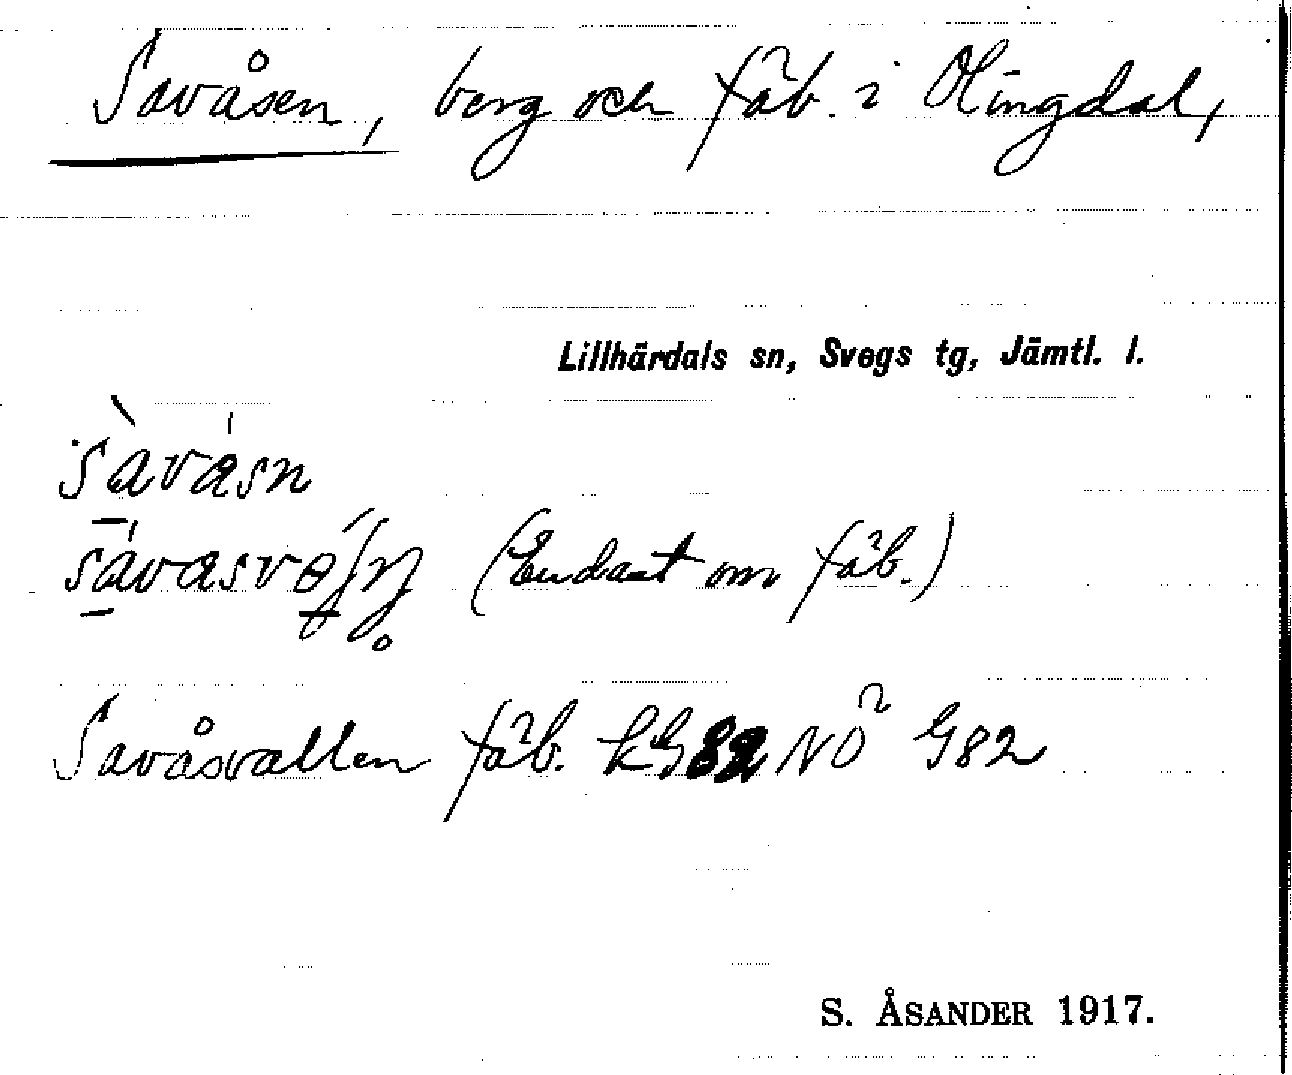 Savåsen, berg och fäb. i Olingdal,
Lillhärdals sn, Svegs tg, Jämtl. l.
sàvåsn
(Endast om fäb.)
Savåsvallen fäb. LG82 NÖ G82
S. ÅSANDER 1917.